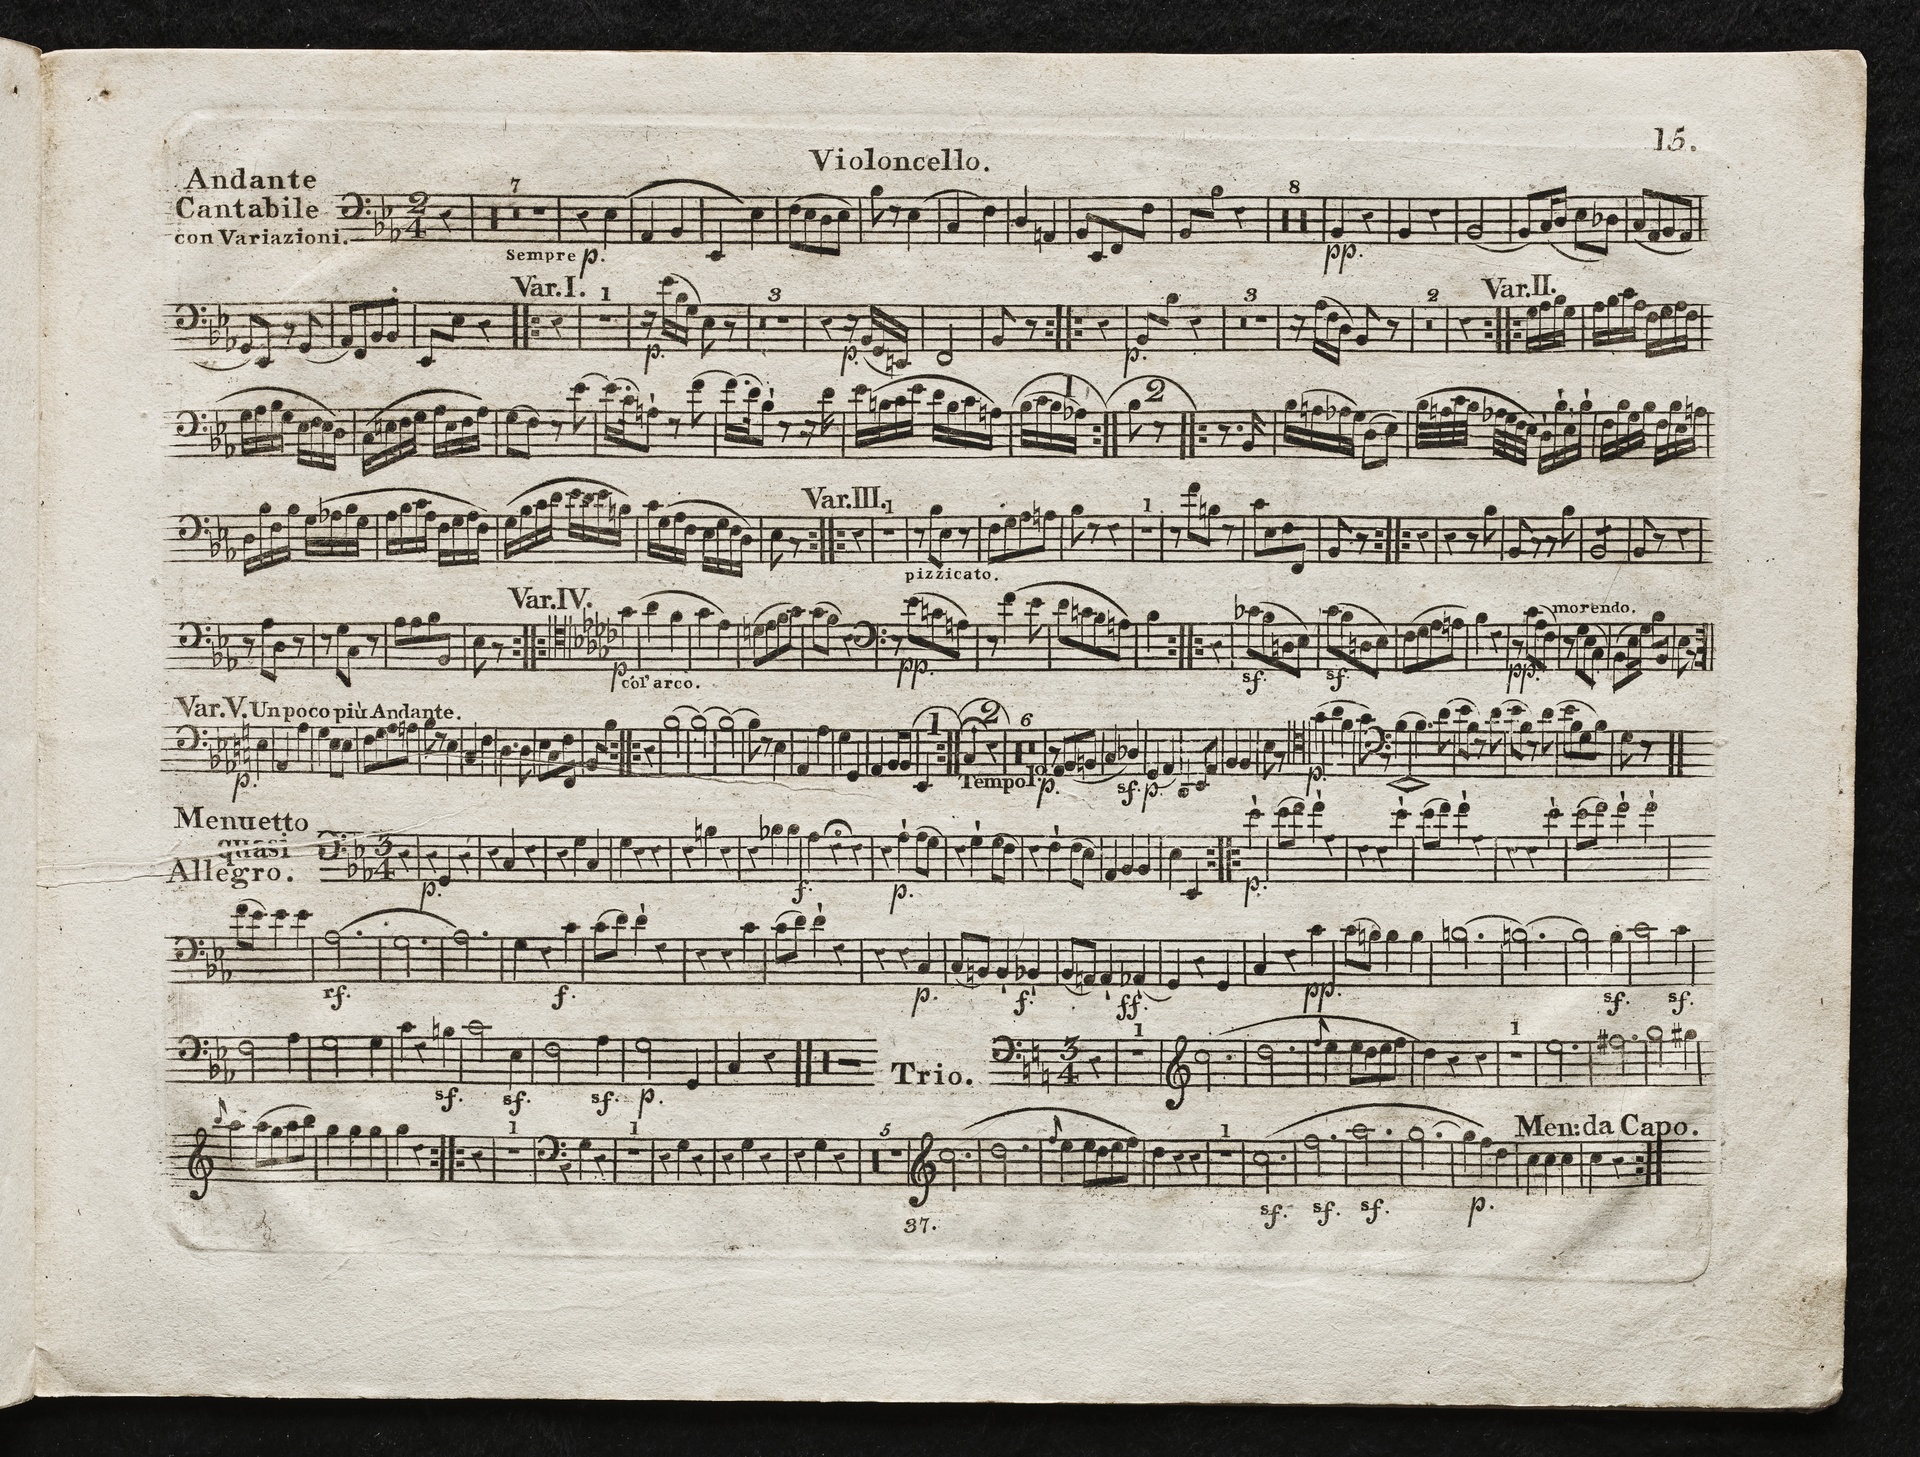 15.
Violoncello.
Andante
Cantabile
con Variazioni.
2
4
7
8
Sempre p.
pp.
Var.I. 1
3
3
2
Var.II.
p.
p.
p.
1
2
Var.III. 1
1
pizzicato.
Var.IV.
morendo.
p col'arco.
pp.
sf.
sf.
pp.
Var.V. Un poco più Andante.
1
2
6
p.
Tempo Iº p.
sf. p.
p.
Menuetto
quasi
Allegro.
3
4
p.
f.
p.
p.
rf.
f.
p.
f.
ff.
pp.
sf.
sf.
Trio.
3
4
1
1
sf.
sf.
sf.
p.
Men: da Capo.
1
1
5
1
sf.
sf.
sf.
p.
37.